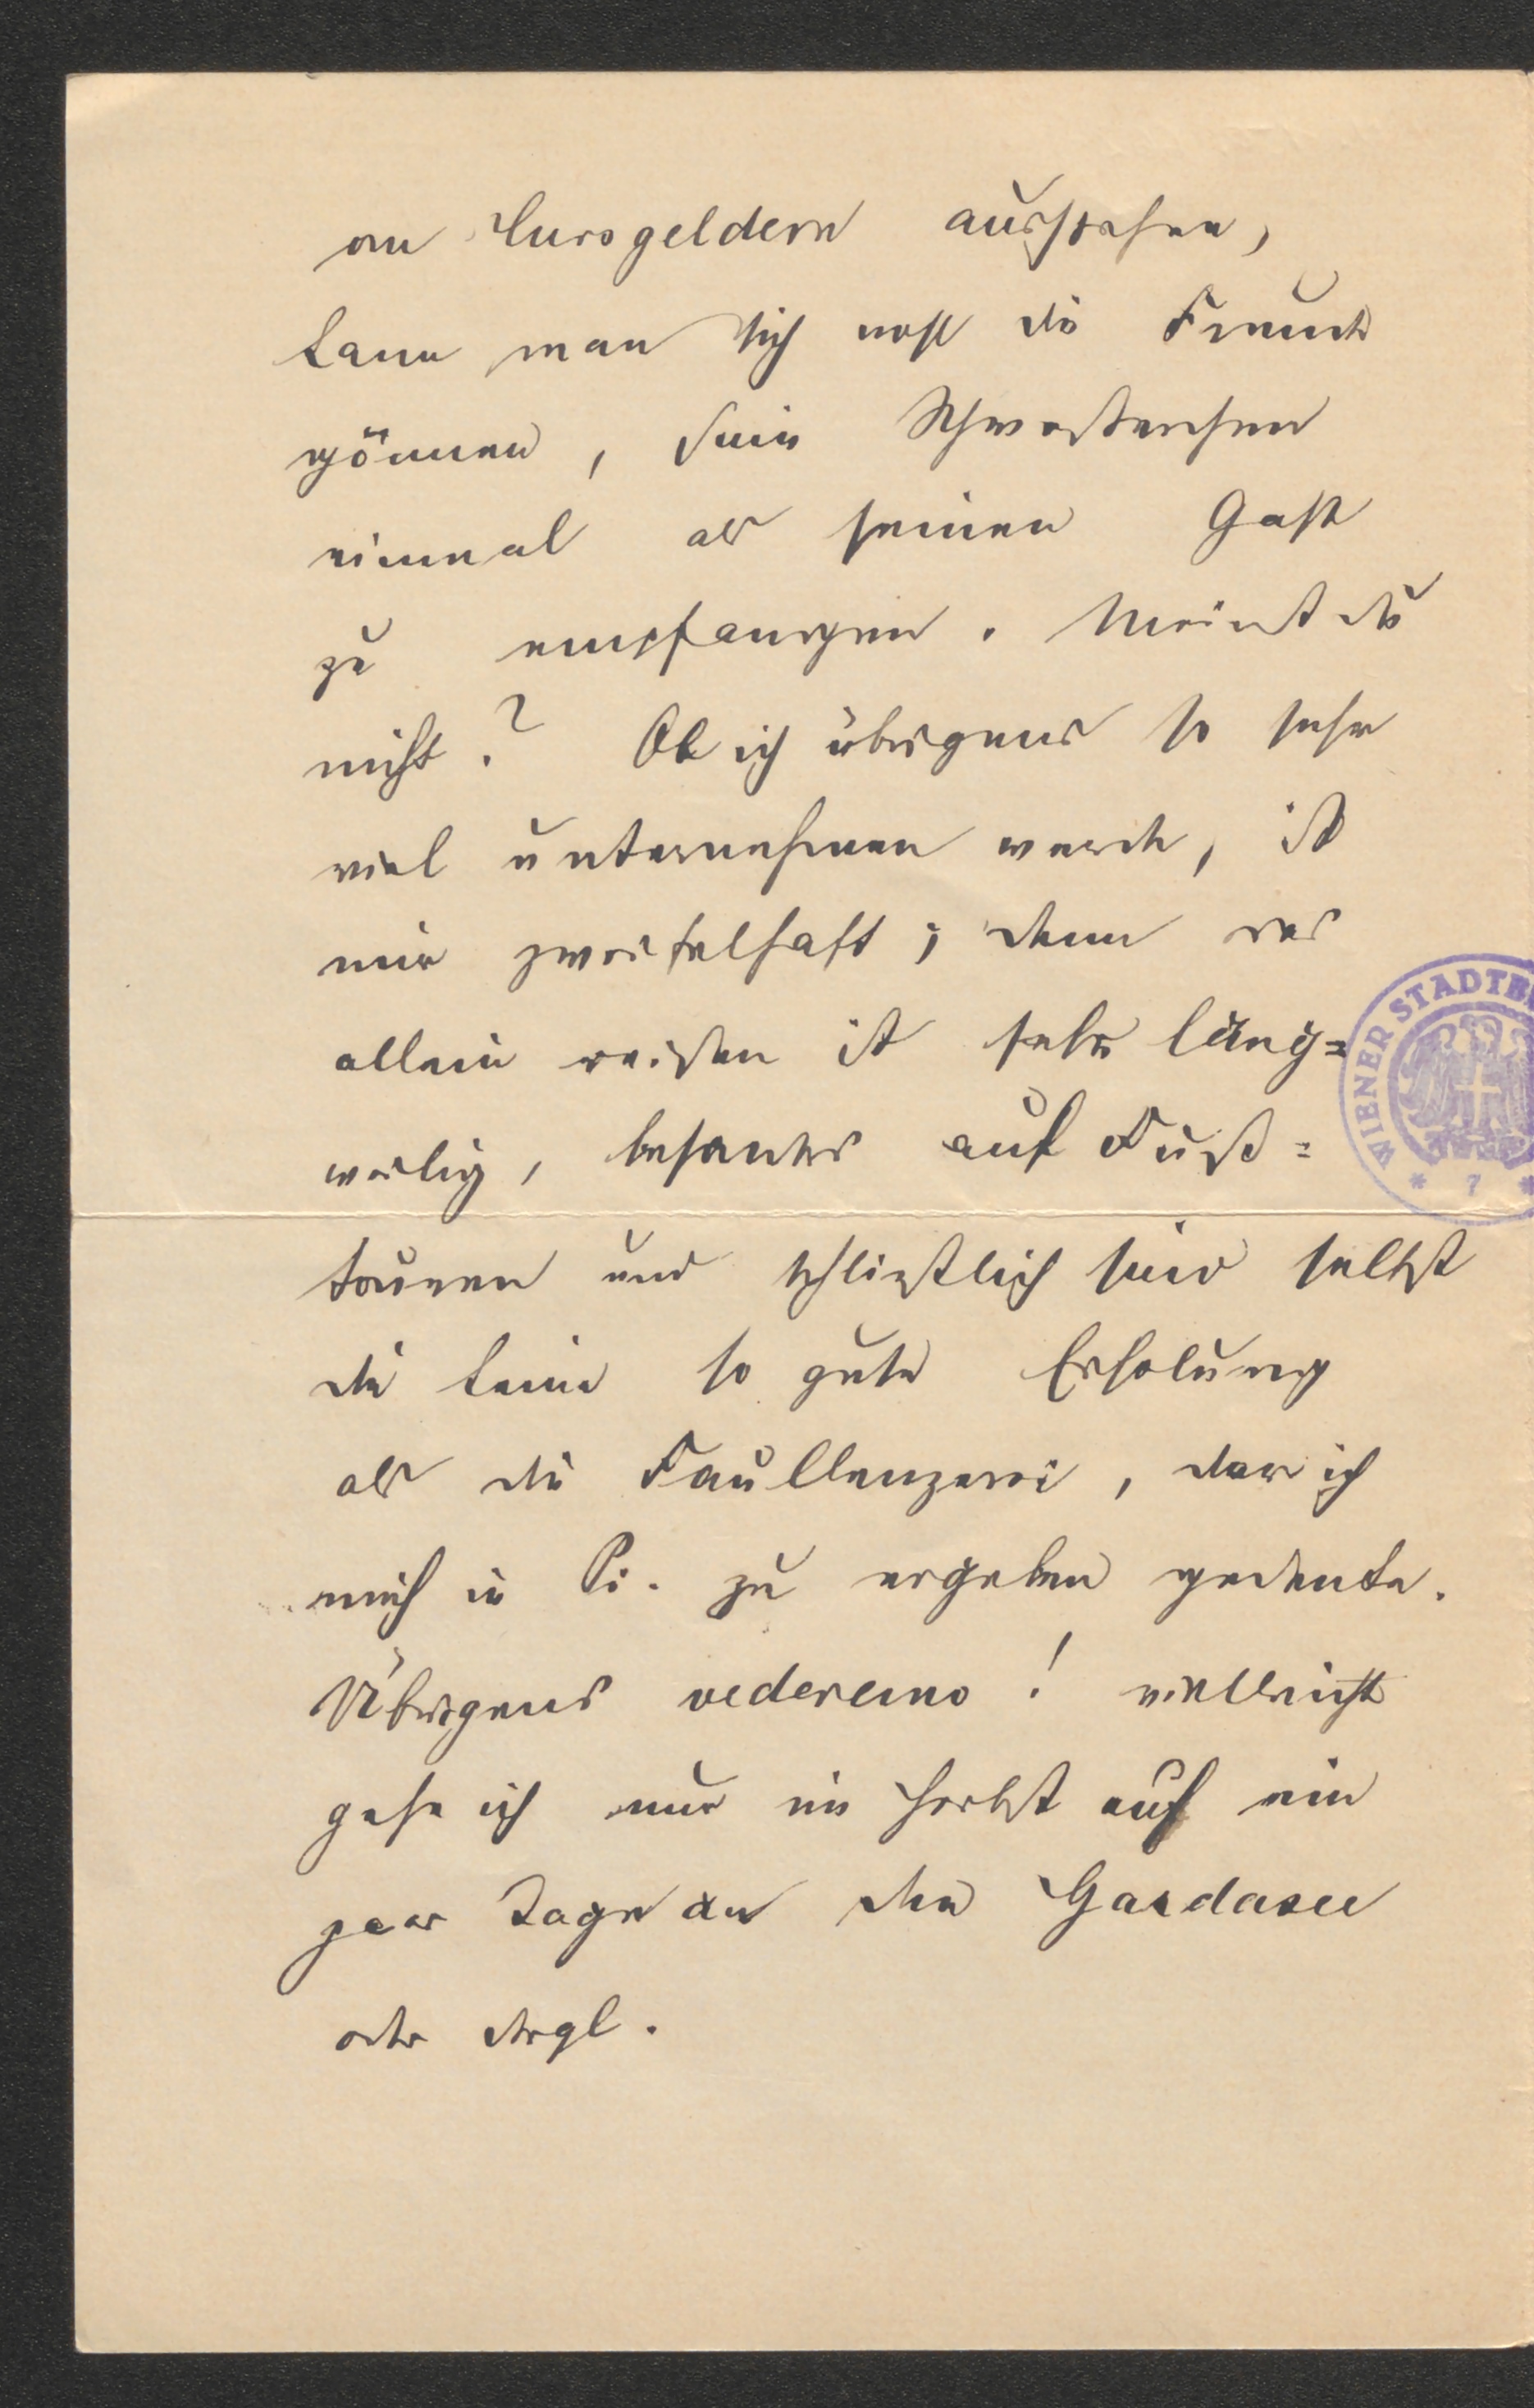 an Kursgeldern ausstehen,
kann man sich wohl die Freude
gönnen, sein Schwesterchen
einmal als seinen Gast
zu empfangen. Meinst du
nicht? Ob ich übrigens so sehr
viel unternehmen werde, ist
mir zweifelhaft; denn das
allein reisen ist sehr lang=
weilig, besonders auf Fuß=
touren und schließlich sind selbst
die keine so gute Erholung
als die Faullenzerei, der ich
mich in Pi. zu ergeben gedenke.
Übrigens vederemo! vielleicht
gehe ich nur im Herbst auf ein
paar Tage an den Gardasee
oder dergl.
WIENER STADTB
* 7 *